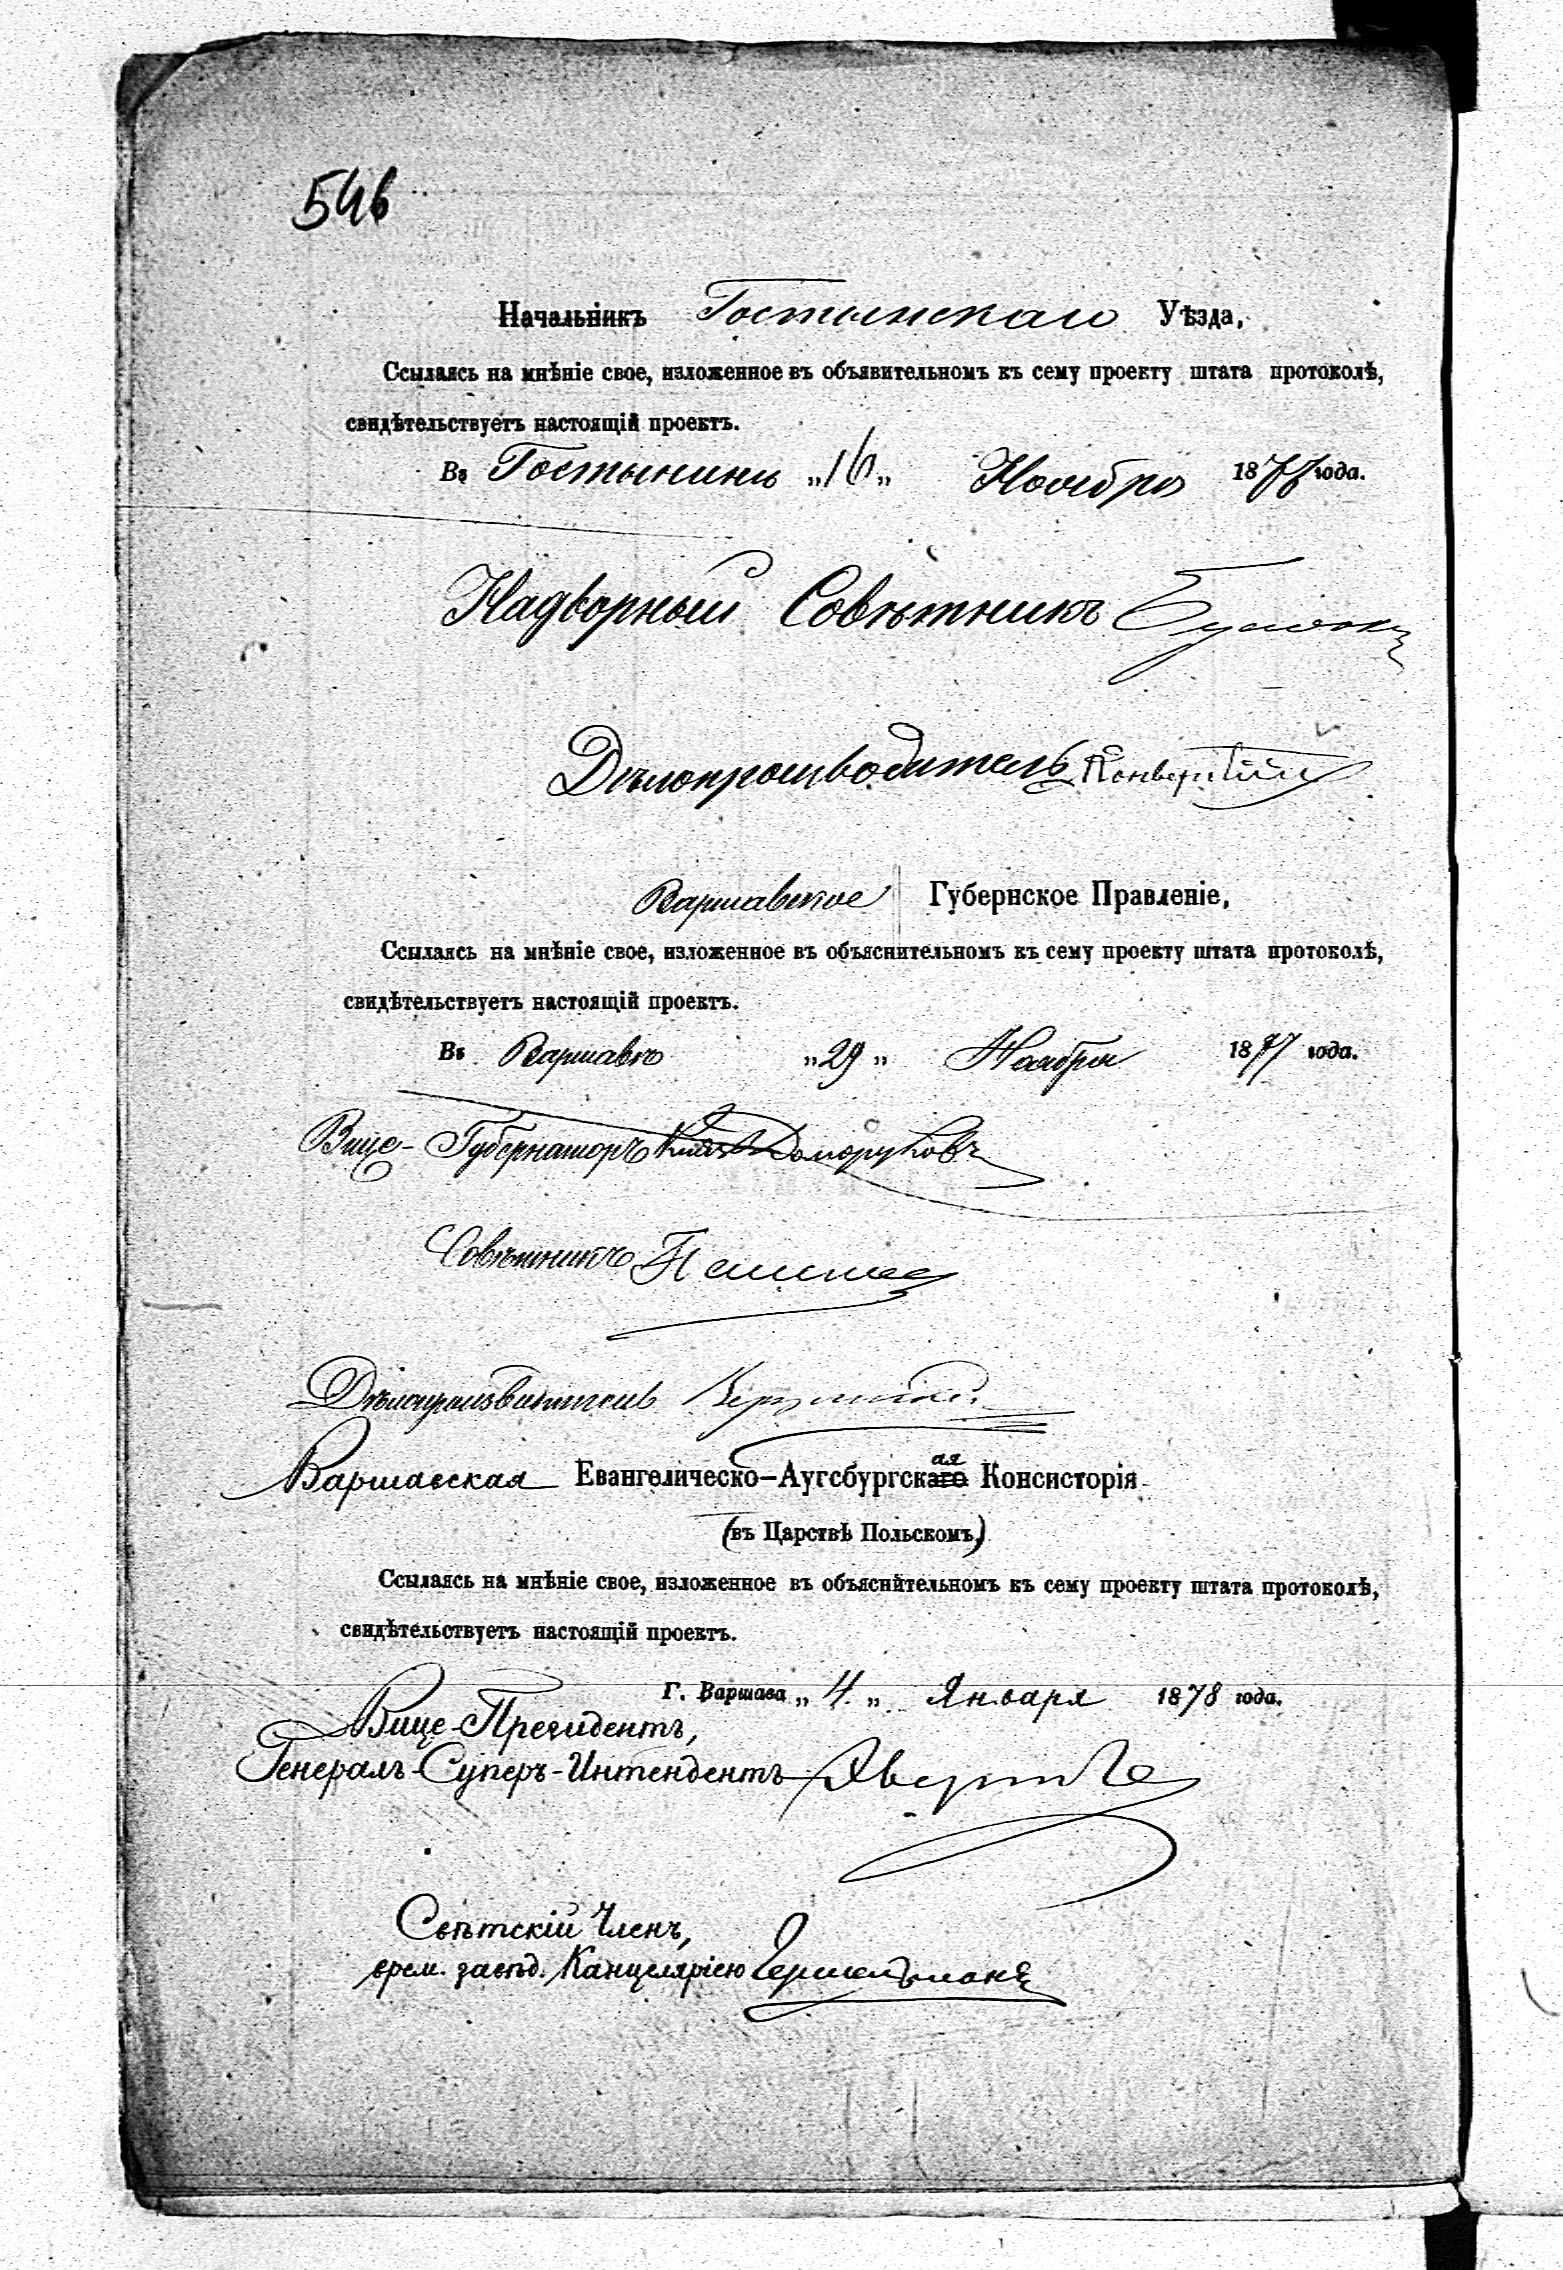 546
Начальникъ Гостынскаго Уѣзда,
Ссылаясь на мнѣніе свое, изложенное въ объявительномъ къ сему проекту штата протоколѣ,
свидѣтельствуетъ настоящій проектъ.
Въ Гостынинѣ „16„ Ноября 1877 года.
Надворный Совѣтникъ
Дѣлопроизводитель
Варшавское Губернское Правленіе,
Ссылаясь на мнѣніе свое, изложенное въ объяснительномъ къ сему проекту штата протоколѣ,
свидѣтельствуетъ настоящій проектъ.
Въ Варшавѣ „29„ Ноября 1877 года.
Вице-Губернаторъ Князь Долгоруковъ
Совѣтникъ
Дѣлопроизводитель
Варшавская Евангелическо-Аугсбургская Консисторія
(въ Царствѣ Польскомъ)
Ссылаясь на мнѣніе свое, изложенное въ объяснительномъ къ сему проекту штата протоколѣ,
свидѣтельствуетъ настоящій проектъ.
Г. Варшава „4.„ Января 1878 года.
Вице-Президентъ,
Генералъ-Суперъ-Интендентъ
Свѣтскій Членъ,
врем. завѣд. Канцеляріею